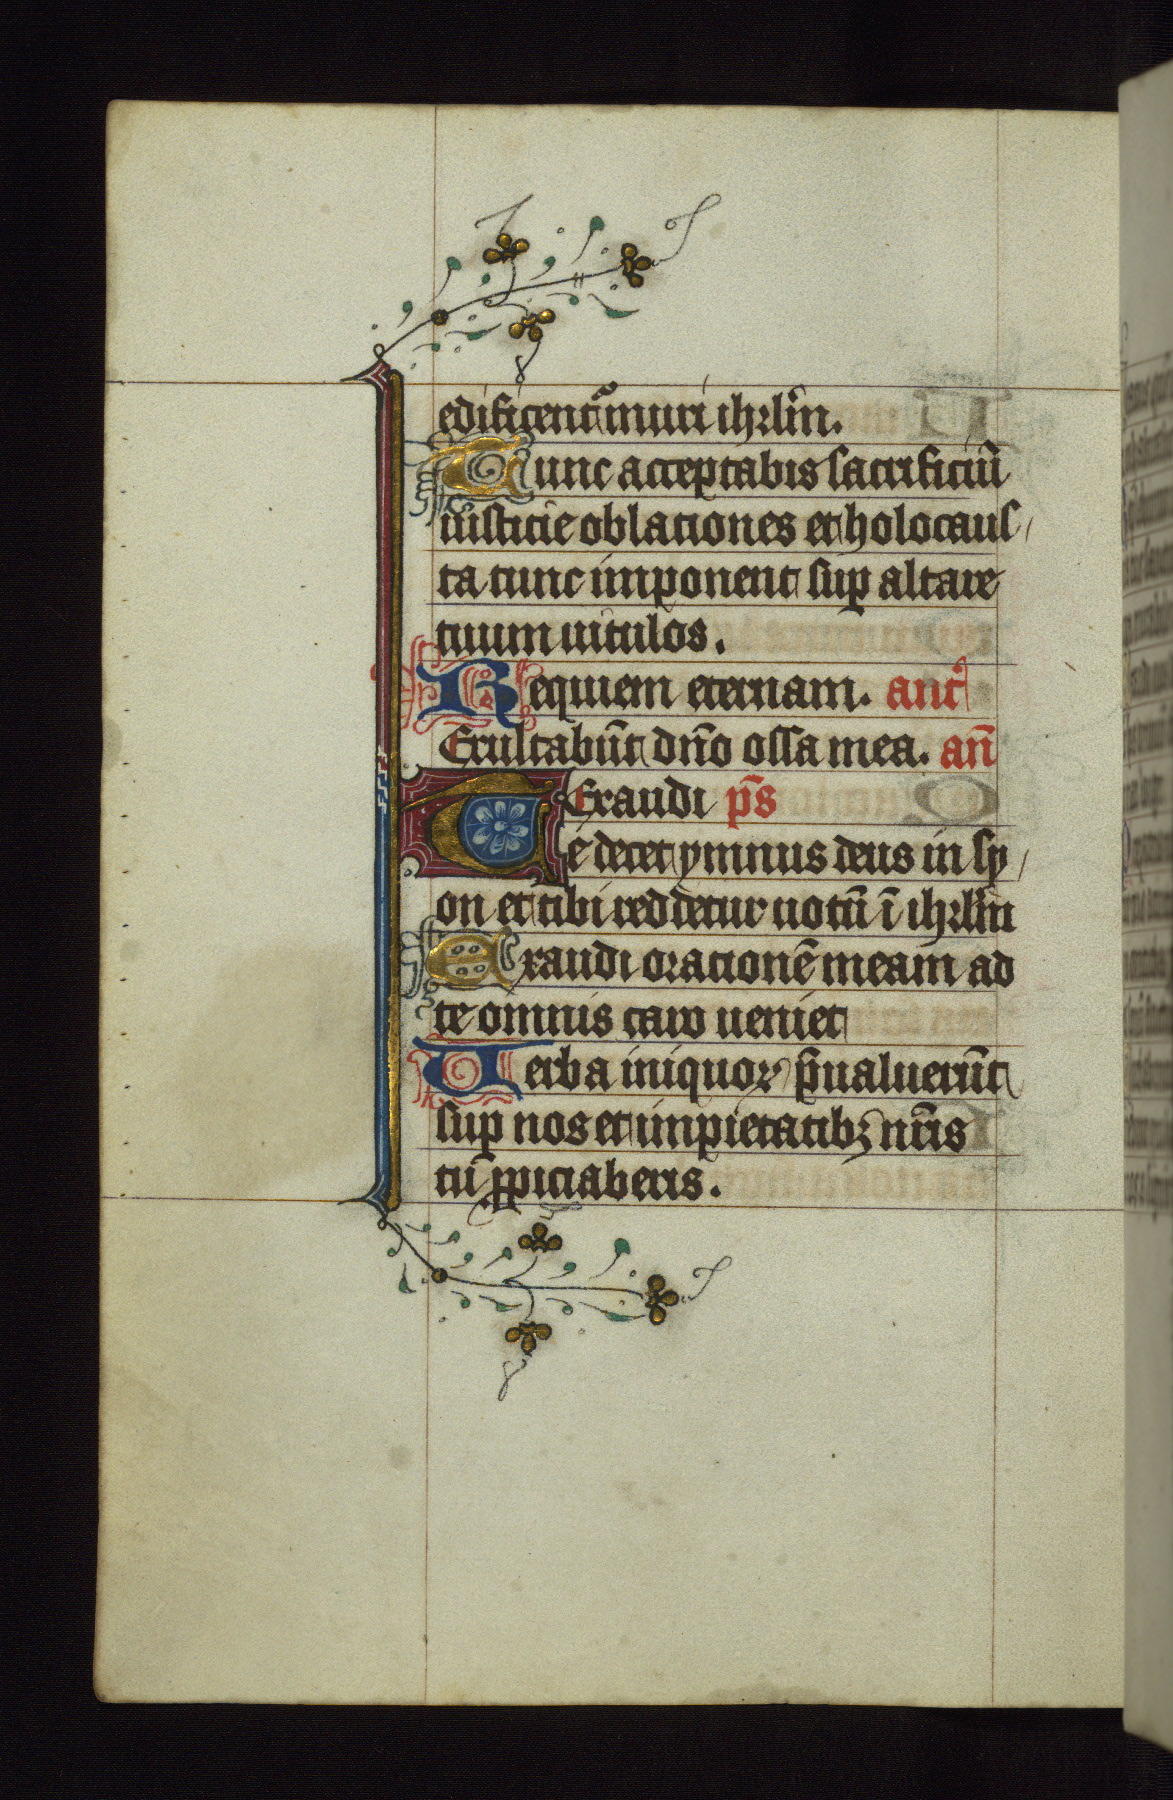 edificent᷑ muri ihrl̄m.
Tunc acceptabis sacrificiū
iusticie oblationes et holocaus
ta tunc imponent suꝑ altare
tuum uitulos.
Requiem eternam. ant᷑
Exultabūt dn̄o ossa mea. an̄
Exaudi p̄s
Te decet ymnus deus in sy
on et tibi reddetur uotū ī ihrl̄m
Exaudi orationē meam ad
te omnis caro ueniet
Uerba iniquoꝝ p̄ualuerūt
suꝑ nos et impietatibꝫ nr̄is
tū ꝓpiciaberis.